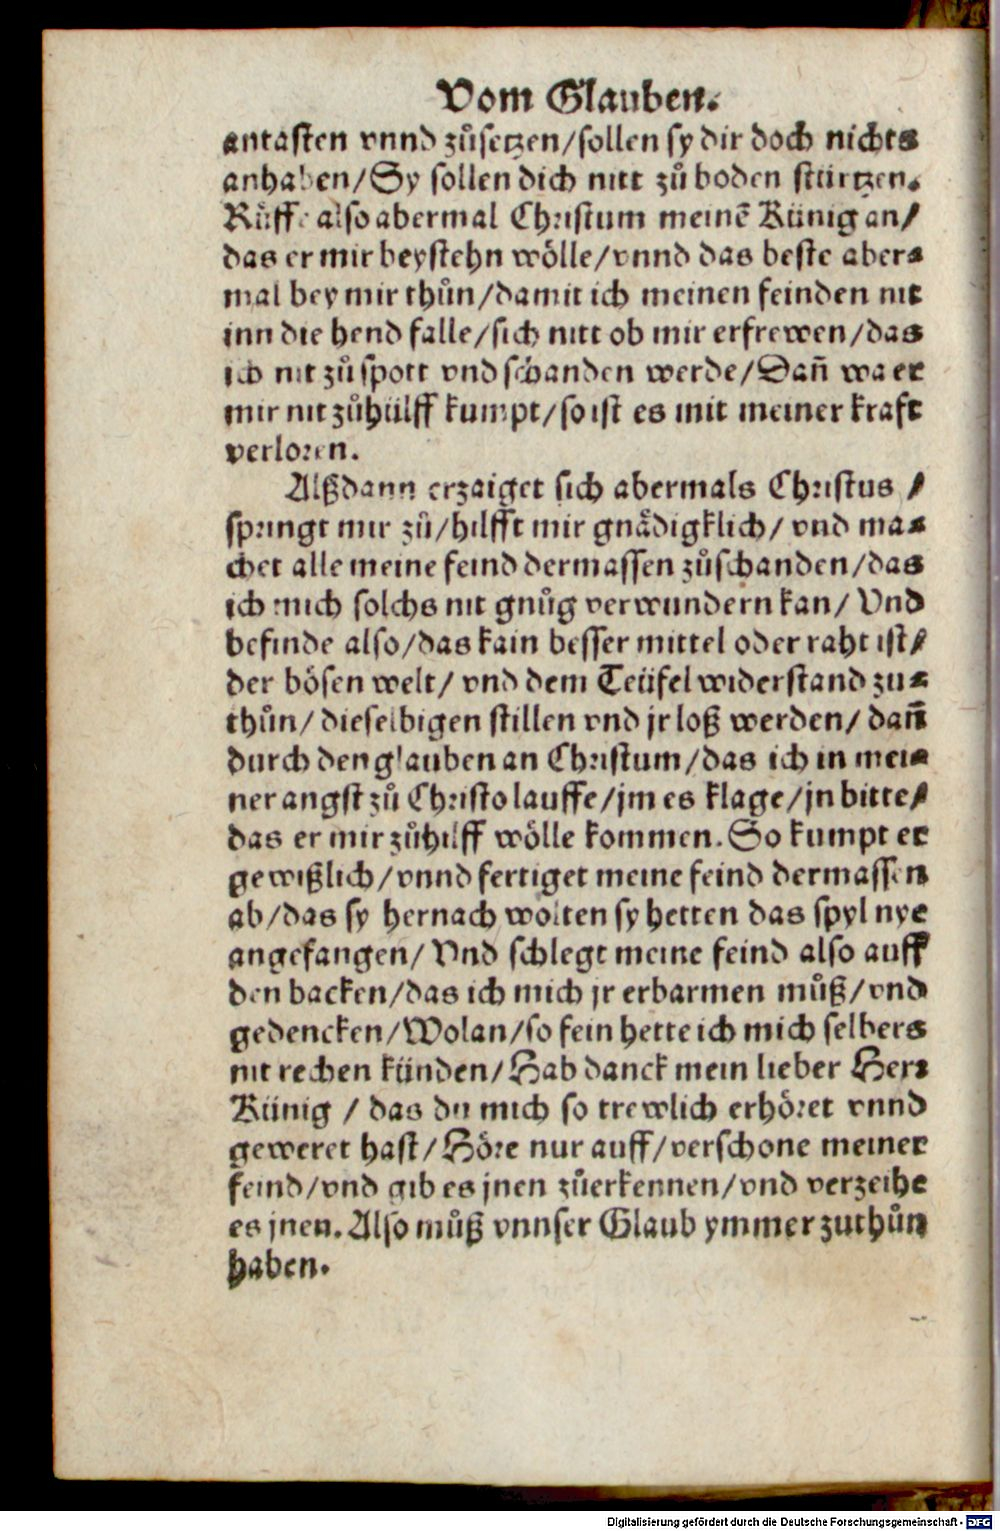 Vom Glauben.
antasten vnnd zůsetzen/sollen sy dir doch nichts
anhaben/Sy sollen dich nitt zů boden stürtzen.
Růffe also abermal Christum meinē Künig an/
das er mir beystehn wölle/vnnd das beste aber⸗
mal bey mir thůn/damit ich meinen feinden nit
inn die hend falle/sich nitt ob mir erfrewen/das
ich nit zů spott vnd schanden werde/Dañ wa er
mir nit zůhülff kumpt/so ist es mit meiner kraft
verloren.
Alßdann erzaiget sich abermals Christus /
springt mir zů/hilfft mir gnådigklich/ vnd ma⸗
chet alle meine feind dermassen zůschanden/das
ich mich solchs nit gnůg verwundern kan/ Vnd
befinde also/das kain besser mittel oder raht ist/
der bösen welt/ vnd dem Teüfel widerstand zu⸗
thůn/ dieselbigen stillen vnd jr loß werden/ dañ
durch den glauben an Christum/das ich in mei⸗
ner angst zů Christo lauffe/jm es klage/jn bitte/
das er mir zůhilff wölle kommen. So kumpt er
gewißlich/vnnd fertiget meine feind dermassen
ab/das sy hernach wolten sy hetten das spyl nye
angefangen/ Vnd schlegt meine feind also auff
den backen/das ich mich jr erbarmen můß/vnd
gedencken/Wolan/so fein hette ich mich selbers
nit rechen künden/Hab danck mein lieber Herr
Künig / das du mich so trewlich erhöret vnnd
geweret hast/Höre nur auff/verschone meiner
feind/vnd gib es jnen zůerkennen/vnd verzeihe
es jnen. Also můß vnnser Glaub ymmer zuthůn
haben.
Digitalisierung gefördert durch die Deutsche Forschungsgemeinschaft - DFG